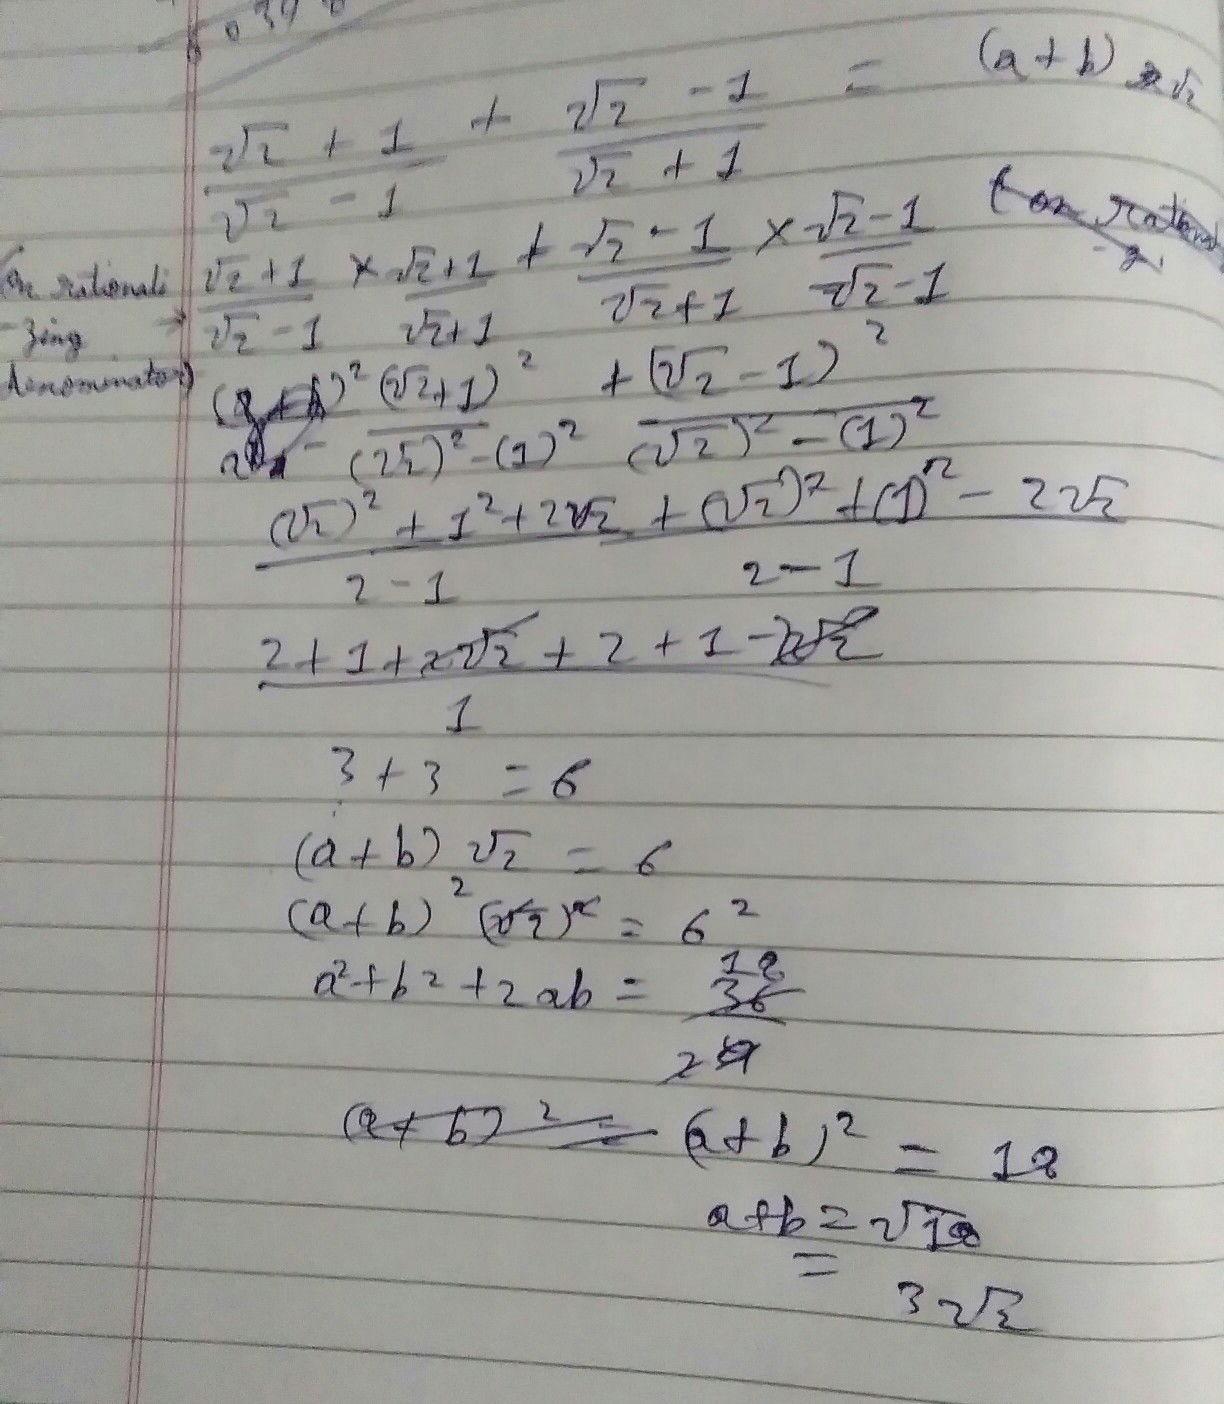 (√2 + 1)/(√2 - 1) + (√2 - 1)/(√2 + 1) = (a + b) √2
On rationali -zing denominator) → (√2 + 1)/(√2 - 1) × (√2 + 1)/(√2 + 1) + (√2 - 1)/(√2 + 1) × (√2 - 1)/(√2 - 1)
(√2 + 1)²/((√2)² - (1)²) + (√2 - 1)²/((√2)² - (1)²)
((√2)² + 1² + 2√2)/(2 - 1) + ((√2)² + (1)² - 2√2)/(2 - 1)
(2 + 1 + 2√2 + 2 + 1 - 2√2)/1
3 + 3 = 6
(a + b) √2 = 6
(a + b)² (√2)² = 6²
a² + b² + 2ab = 36/2 18
(a + b)² = (a + b)² = 18
a + b = √18
= 3√2